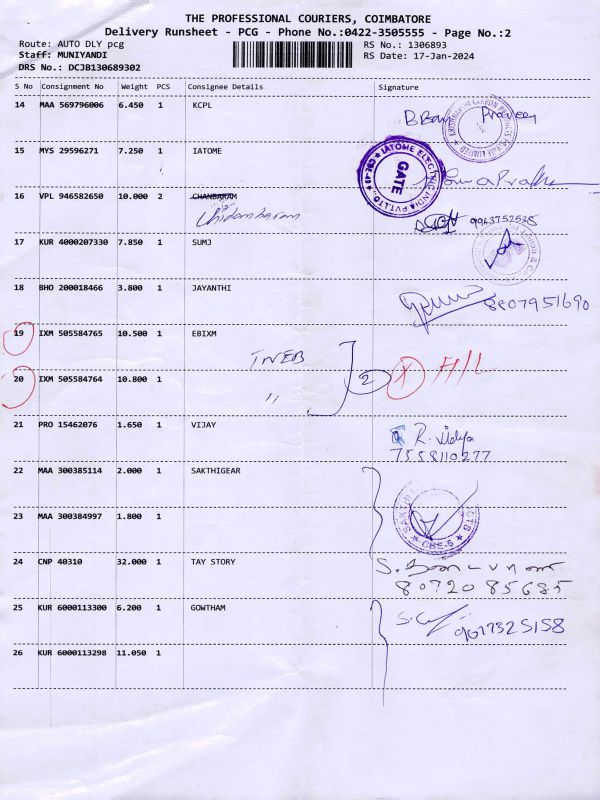 THE PROFESSIONAL COURIERS, COIMBATORE
Delivery Runsheet - PCG - Phone No.:0422-3505555 - Page No.:2
Route: AUTO DLY pcg RS No.: 1306893
Staff: MUNIYANDI RS Date: 17-Jan-2024
DRS No.: DCJB130689302
S No Consignment No Weight PCS Consignee Details Signature
14 MAA 569796006 6.450 1 KCPL
Praveen
15 MYS 29596271 7.250 1 IATOME
IATOME ELECTRIC INDIA PVT.LTD. CBE-49
GATE
16 VPL 946582650 10.000 2 CHANBARAM
Chidambaram
9943752538
17 KUR 4000207330 7.850 1 SUMJ
18 BHO 200018466 3.800 1 JAYANTHI
8807951690
19 IXM 505584765 10.500 1 EBIXM
TNEB
20 IXM 505584764 10.800 1
"
2
X
21 PRO 15462076 1.650 1 VIJAY
R. Vidya
7558110277
22 MAA 300385114 2.000 1 SAKTHIGEAR
23 MAA 300384997 1.800 1
24 CNP 40310 32.000 1 TAY STORY
8072085685
25 KUR 6000113300 6.200 1 GOWTHAM
9677325158
26 KUR 6000113298 11.050 1